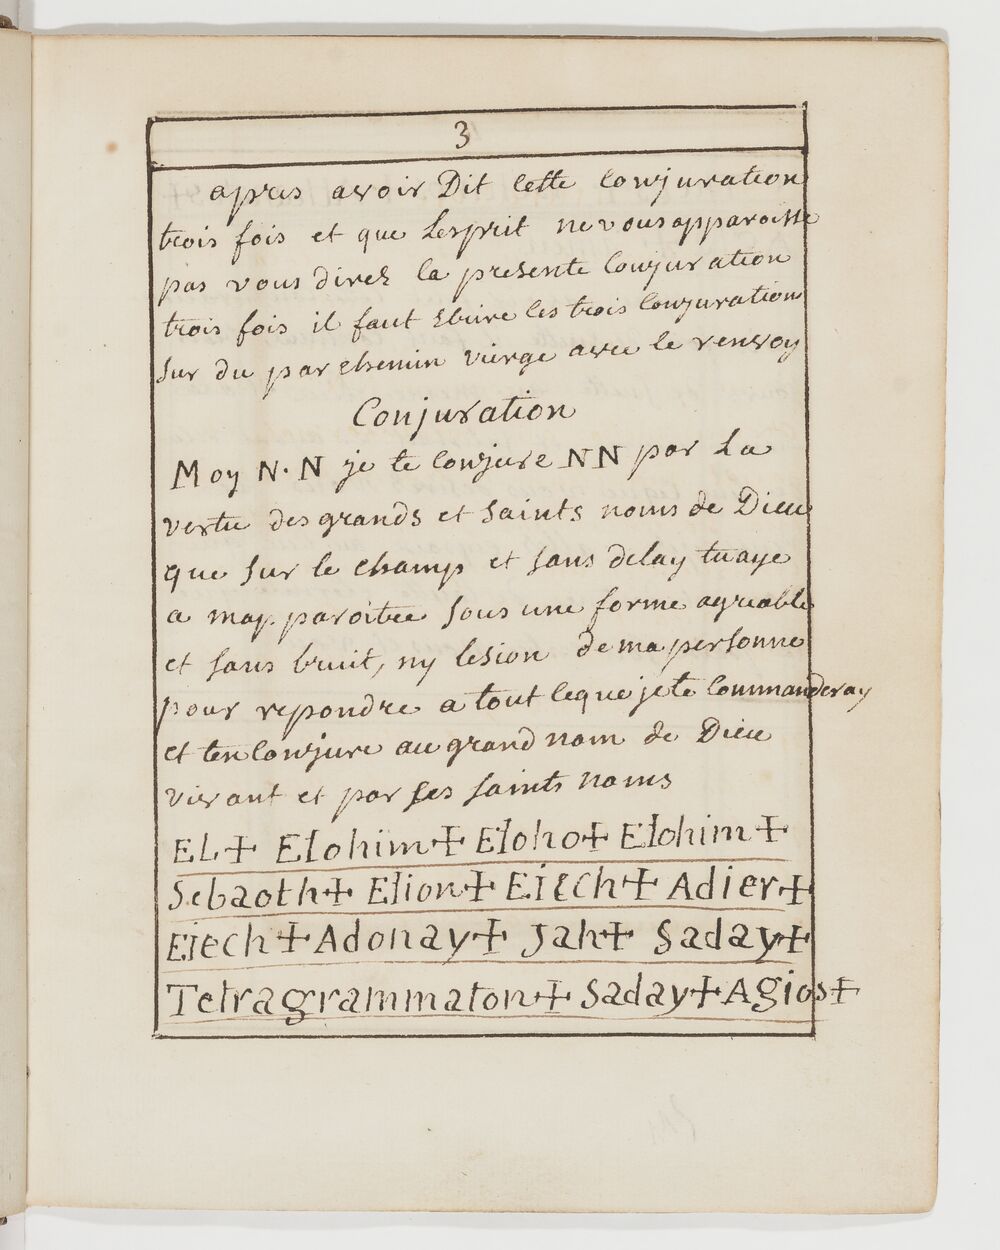 3
apres avoir Dit cette conjuration
trois fois et que Lesprit ne vous apparoisse
pas vous direz la presente Conjuration
trois fois il faut Ecrire les trois Conjuration
sur du parchemin vierge avec le renvoy
Conjuration
Moy N. N je te conjure NN par La
vertu des grands et saints noms de Dieu
que sur le champ et sans delay tu aye
a map paroitre sous une forme agreable
et sans bruit, ny lesion de ma personne
pour repondre a tout ceque je te Commanderay
et ten Conjure au grand nom de Dieu
vivant et par ses saints noms
EL+ Elohim+ Eloho+ Elohim+
Sebaoth+ Elion+ Eiech+ Adier+
Eiech+ Adonay+ Jah+ Saday+
Tetragrammaton+ Saday+ Agios+